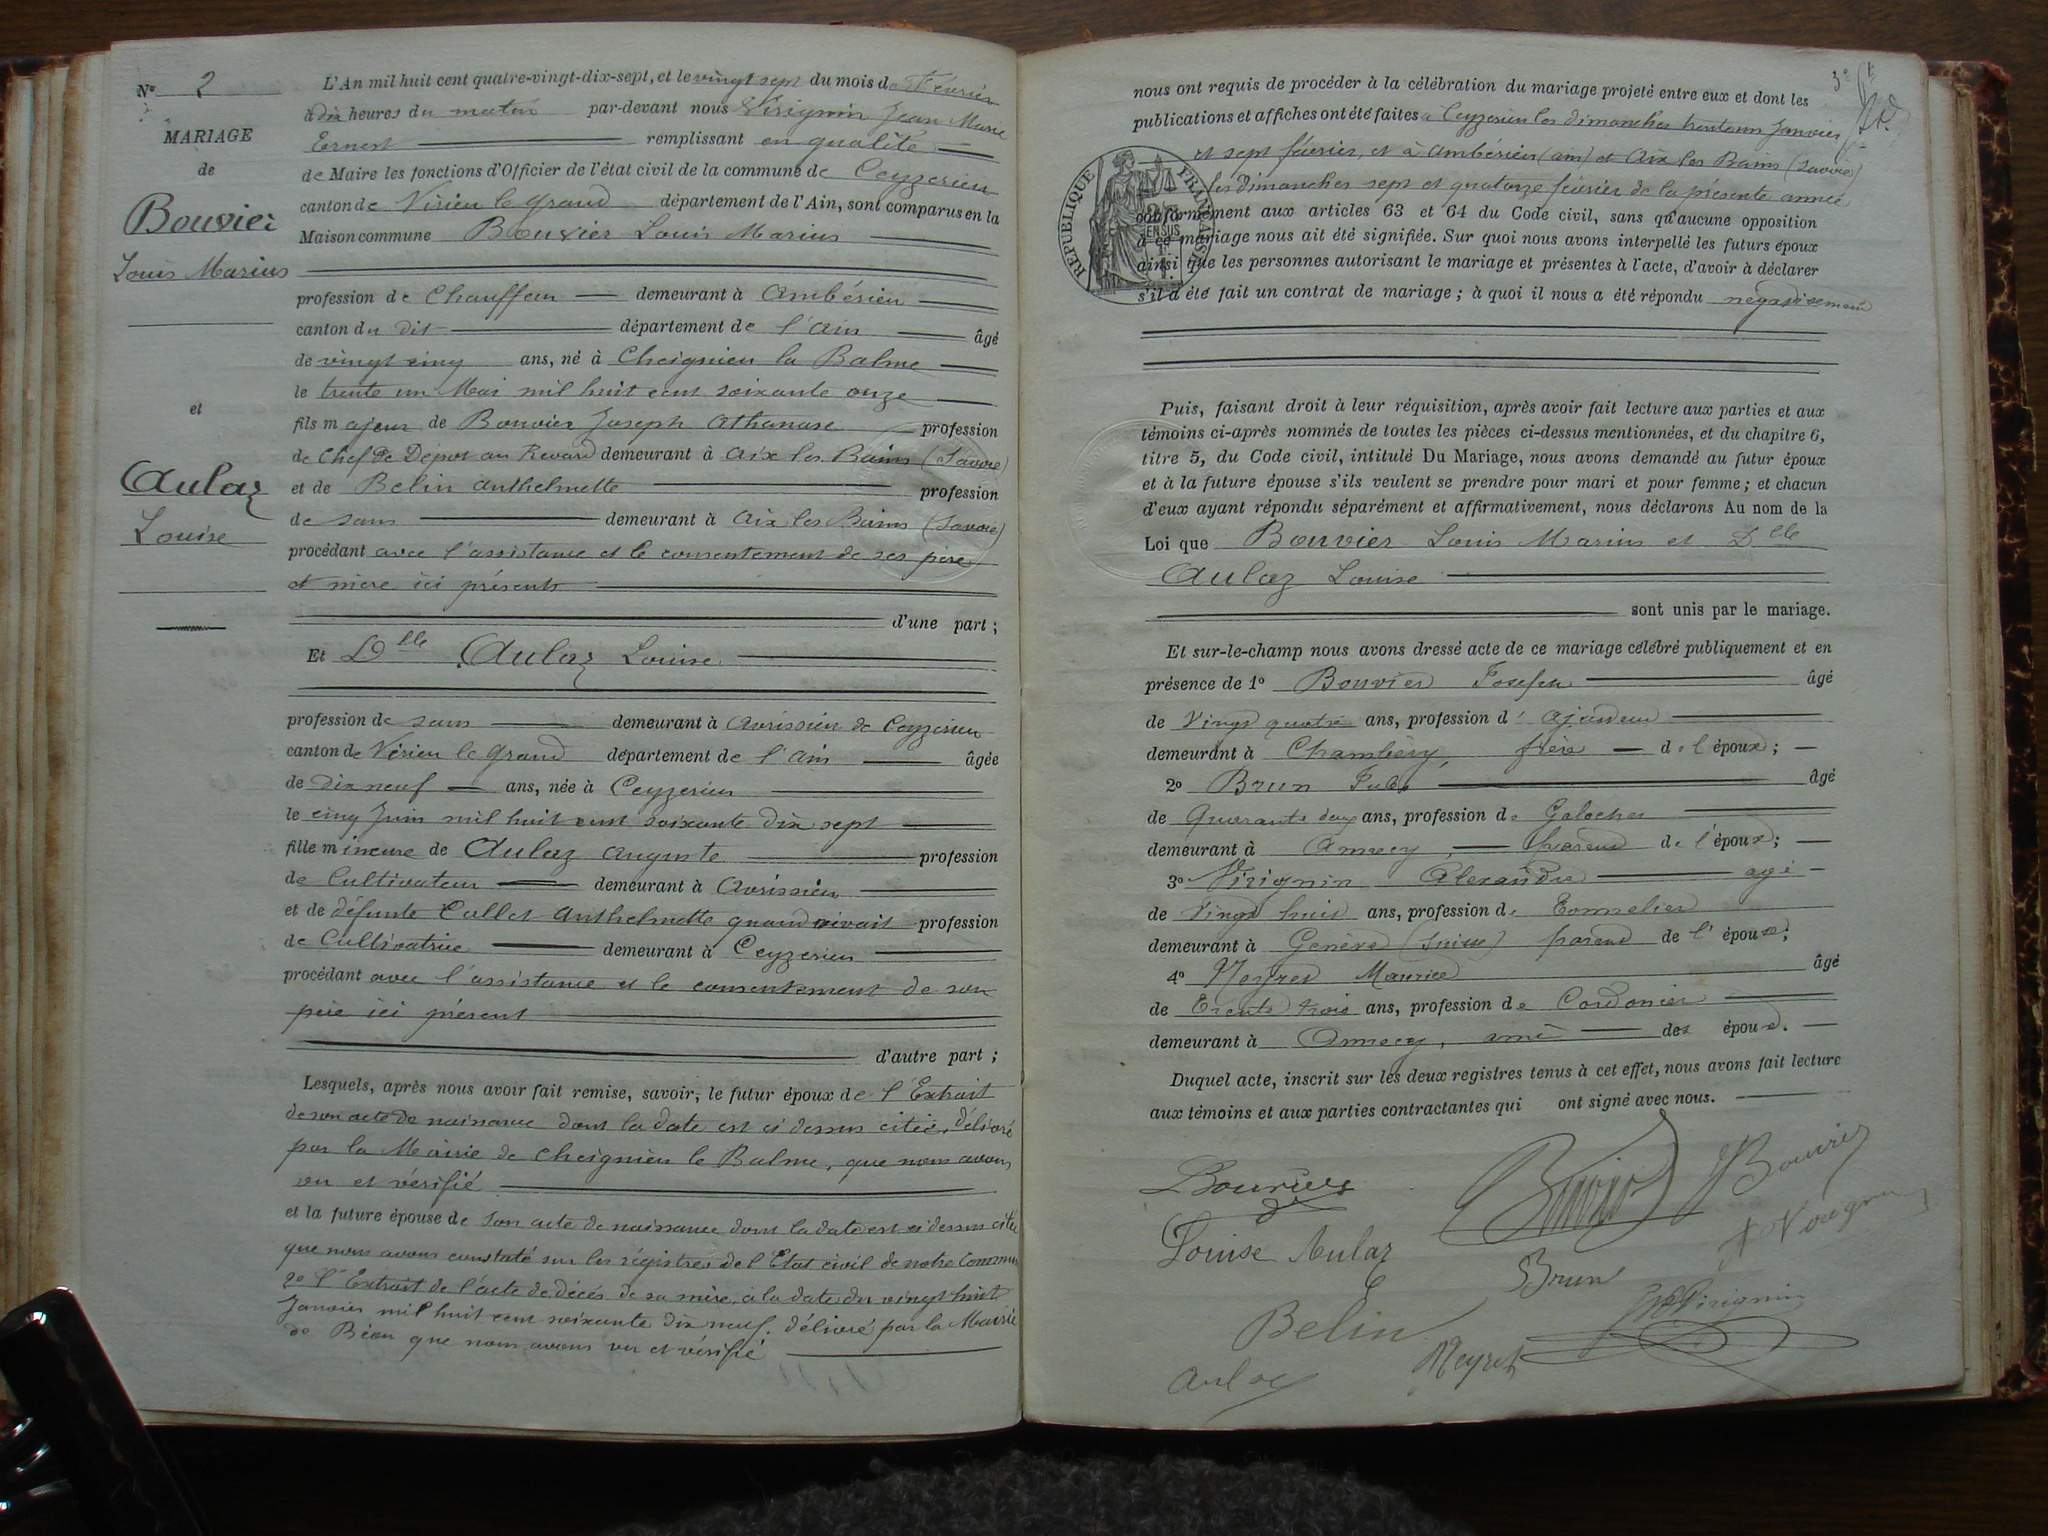 N° 2
MARIAGE
de
Bouvier
Louis Marius
et
Aulaz
Louise
L'An mil huit cent quatre-vingt-dix-sept, et le vingt sept du mois de Février
à dix heures du matin par-devant nous Virignin Jean Marie
Ernest remplissant en qualité
de Maire les fonctions d'Officier de l'état civil de la commune de Ceyzerieu
canton de Virieu le grand département de l'Ain, sont comparus en la
Maison commune Bouvier Louis Marius
profession de Chauffeur demeurant à Ambérieu
canton du dit département de l'Ain âgé
de vingt cinq ans, né à Cheignieu la Balme
le trente un Mai mil huit cent soixante onze
fils majeur de Bouvier Joseph Athanase profession
de Chef de Dépot au Revard demeurant à Aix les Bains (Savoie)
et de Belin Anthelmette profession
de sans demeurant à Aix les Bains (Savoie)
procédant avec l'assistance et le consentement de ses père
et mère ici présents
d'une part ;
Et Dlle Aulaz Louise
profession de sans demeurant à Avrissieu de Ceyzerieu
canton de Virieu le grand département de l'Ain âgée
de dix neuf ans, née à Ceyzerieu
le cinq Juin mil huit cent soixante dix sept
fille mineure de Aulaz Auguste profession
de Cultivateur demeurant à Avrissieu
et de défunte Cullet Anthelmette quand vivait profession
de Cultivatrice demeurant à Ceyzerieu
procédant avec l'assistance et le consentement de son
père ici présent
d'autre part ;
Lesquels, après nous avoir fait remise, savoir, le futur époux de l'Extrait
de son acte de naissance dont la date est ci dessus citée, délivré
par la Mairie de Cheignieu la Balme, que nous avons
vu et vérifié
et la future épouse de son acte de naissance dont la date est ci dessus citée
que nous avons constaté sur les régistres de l'Etat civil de notre Commune
2° l'Extrait de l'acte de décés de sa mère, a la date du vingt huit
Janvier mil huit cent soixante dix neuf. délivré par la Mairie
de Béon que nous avons vu et vérifié
3e
nous ont requis de procéder à la célébration du mariage projeté entre eux et dont les
publications et affiches ont été faites à Ceyzerieu les dimanches trente un Janvier
et sept février, et à Ambérieu (ain) et Aix les Bains (Savoie)
les dimanches sept et quatorze février de la présente année
conformément aux articles 63 et 64 du Code civil, sans qu'aucune opposition
à ce mariage nous ait été signifiée. Sur quoi nous avons interpellé les futurs époux
ainsi que les personnes autorisant le mariage et présentes à l'acte, d'avoir à déclarer
s'il a été fait un contrat de mariage ; à quoi il nous a été répondu négativement
RÉPUBLIQUE FRANÇAISE
Puis, faisant droit à leur réquisition, après avoir fait lecture aux parties et aux
témoins ci-après nommés de toutes les pièces ci-dessus mentionnées, et du chapitre 6,
titre 5, du Code civil, intitulé Du Mariage, nous avons demandé au futur époux
et à la future épouse s'ils veulent se prendre pour mari et pour femme ; et chacun
d'eux ayant répondu séparément et affirmativement, nous déclarons Au nom de la
Loi que Bouvier Louis Marius et Dlle
Aulaz Louise
sont unis par le mariage.
Et sur-le-champ nous avons dressé acte de ce mariage célébré publiquement et en
présence de 1° Bouvier Joseph âgé
de Vingt quatre ans, profession d' ajusteur
demeurant à Chambéry, frère de l'époux ;
2° Brun Jules âgé
de Quarante deux ans, profession de Galocher
demeurant à Annecy, parent de l'époux ;
3° Virignin Alexandre agé
de Vingt huit ans, profession de Tonnelier
demeurant à Genève (Suisse) parent de l'époux ;
4° Neyret Maurice âgé
de Trente trois ans, profession de Cordonier
demeurant à Annecy, ami des époux.
Duquel acte, inscrit sur les deux registres tenus à cet effet, nous avons fait lecture
aux témoins et aux parties contractantes qui ont signé avec nous.
LBouvier
Bouvier
JBouvier
Louise Aulaz
Brun
A Virignin
Belin
Neyret
Virignin
Aulaz